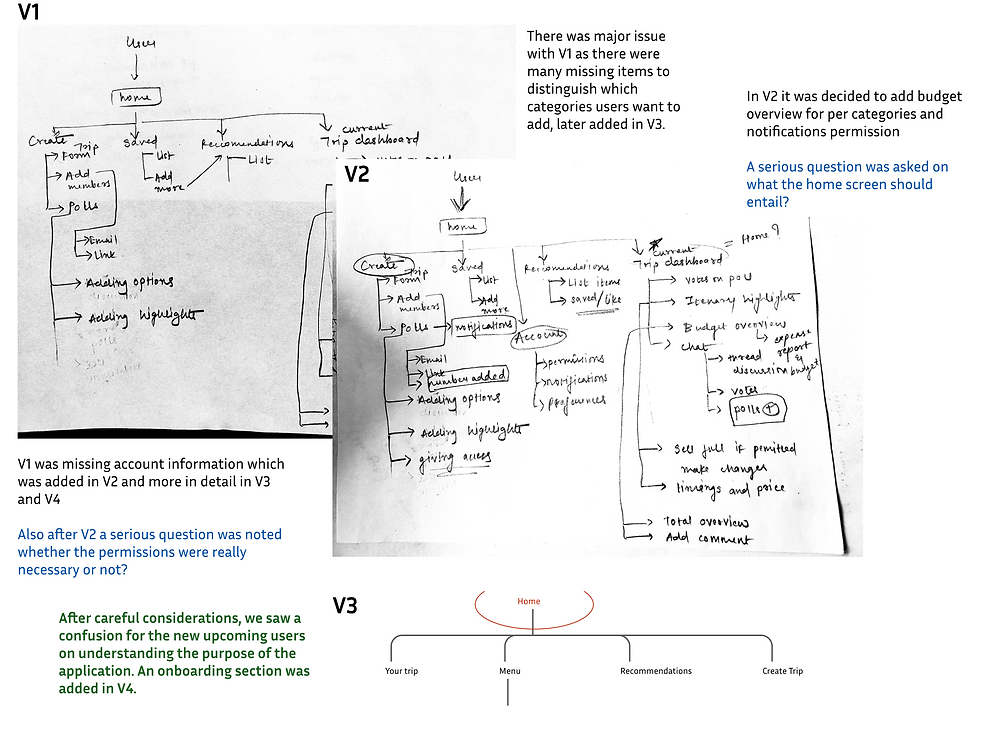 V1
User
home
Create Trip
Form
Add members
Polls
Email
Link
Adding options
Adding highlights
Saved
List
Add more
Reccomendations
List
current
Trip dashboard
There was major issue
with V1 as there were
many missing items to
distinguish which
categories users want to
add, later added in V3.
In V2 it was decided to add budget
overview for per categories and
notifications permission
A serious question was asked on
what the home screen should
entail?
V2
User
home
Create Trip
Form
Add members
Polls
notifications
Email
Link
number added
Adding options
Adding highlights
giving access
Saved
List
Add more
Account
permissions
notifications
preferences
Reccomendations
List items
saved/like
current
Trip dashboard
= Home?
votes on poll
Itenary highlights
Budget overview
expense report & budget
chat
thread discussion
votes
polls +
See full if permitted
make changes
timings and price
Total overview
Add comment
V1 was missing account information which
was added in V2 and more in detail in V3
and V4
Also after V2 a serious question was noted
whether the permissions were really
necessary or not?
After careful considerations, we saw a
confusion for the new upcoming users
on understanding the purpose of the
application. An onboarding section was
added in V4.
V3
Home
Your trip
Menu
Recommendations
Create Trip